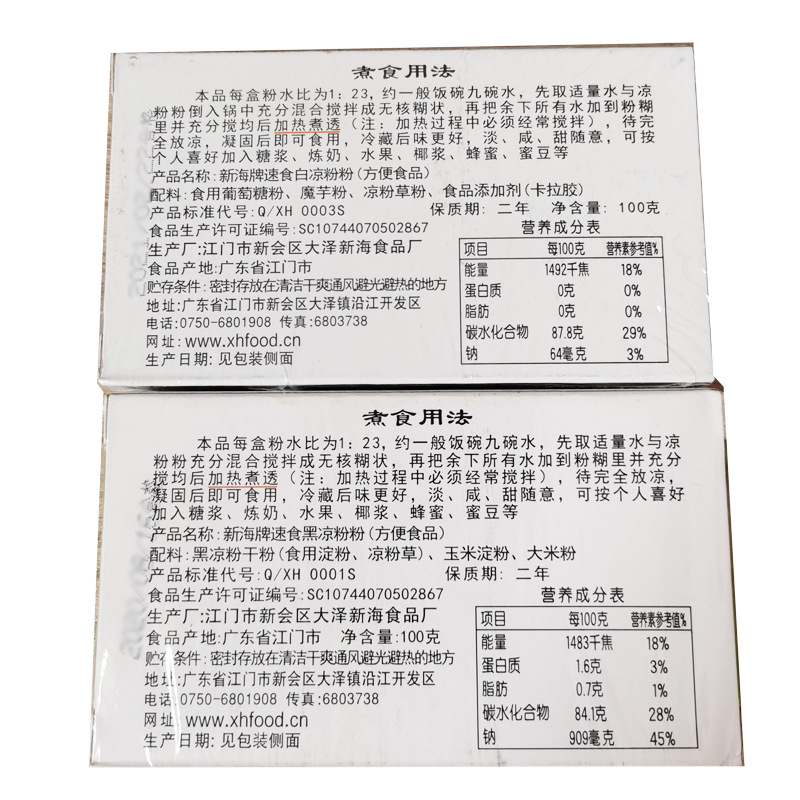 煮食用法
本品每盒粉水比为1：23，约一般饭碗九碗水，先取适量水与凉
粉粉倒入锅中充分混合搅拌成无核糊状，再把余下所有水加到粉糊
里并充分搅均后加热煮透（注：加热过程中必须经常搅拌），待完
全放凉，凝固后即可食用，冷藏后味更好，淡、咸、甜随意，可按
个人喜好加入糖浆、炼奶、水果、椰浆、蜂蜜、蜜豆等
产品名称：新海牌速食白凉粉粉（方便食品）
配料：食用葡萄糖粉、魔芋粉、凉粉草粉、食品添加剂（卡拉胶）
产品标准代号：Q/XH 0003S 保质期：二年 净含量：100克
食品生产许可证编号：SC10744070502867
生产厂：江门市新会区大泽新海食品厂
食品产地：广东省江门市
贮存条件：密封存放在清洁干爽通风避光避热的地方
地址：广东省江门市新会区大泽镇沿江开发区
电话：0750-6801908 传真：6803738
网址：www.xhfood.cn
生产日期：见包装侧面
营养成分表
项目 每100克 营养素参考值%
能量 1492千焦 18%
蛋白质 0克 0%
脂肪 0克 0%
碳水化合物 87.8克 29%
钠 64毫克 3%
煮食用法
本品每盒粉水比为1：23，约一般饭碗九碗水，先取适量水与凉
粉粉充分混合搅拌成无核糊状，再把余下所有水加到粉糊里并充分
搅均后加热煮透（注：加热过程中必须经常搅拌），待完全放凉，
凝固后即可食用，冷藏后味更好，淡、咸、甜随意，可按个人喜好
加入糖浆、炼奶、水果、椰浆、蜂蜜、蜜豆等
产品名称：新海牌速食黑凉粉粉（方便食品）
配料：黑凉粉干粉（食用淀粉、凉粉草）、玉米淀粉、大米粉
产品标准代号：Q/XH 0001S 保质期：二年
食品生产许可证编号：SC10744070502867
生产厂：江门市新会区大泽新海食品厂
食品产地：广东省江门市 净含量：100克
贮存条件：密封存放在清洁干爽通风避光避热的地方
地址：广东省江门市新会区大泽镇沿江开发区
电话：0750-6801908 传真：6803738
网址：www.xhfood.cn
生产日期：见包装侧面
营养成分表
项目 每100克 营养素参考值%
能量 1483千焦 18%
蛋白质 1.6克 3%
脂肪 0.7克 1%
碳水化合物 84.1克 28%
钠 909毫克 45%